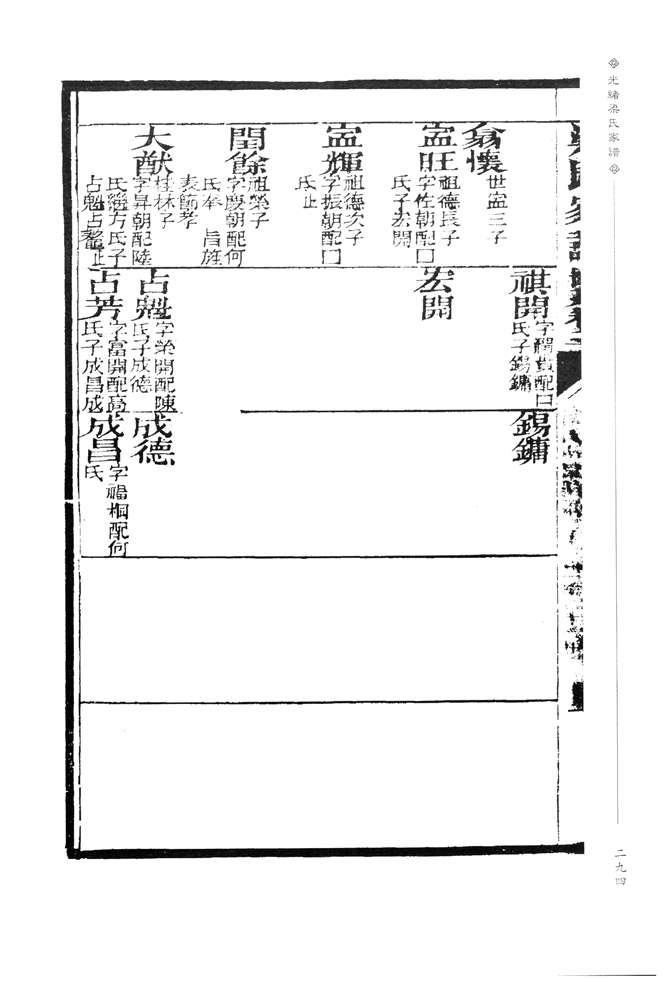 光緒梁氏家譜
氏家譜
祺開
字 配口
氏子錫鏞
錫鏞
翕懷
世盁三子
盁旺
祖德長子
字佐朝配口
氏子宏開
宏開
盁輝
祖德次子
字振朝配口
氏止
閏餘
祖榮子
字慶朝配何
氏奉 旨旌
表節孝
大猷
桂林子
字昇朝配陸
氏繼方氏子
占魁占鰲止
占魁
字榮開配陳
氏子成德
成德
占芳
字富開配高
氏子成昌成
成昌
字福桐配何
氏
二九四